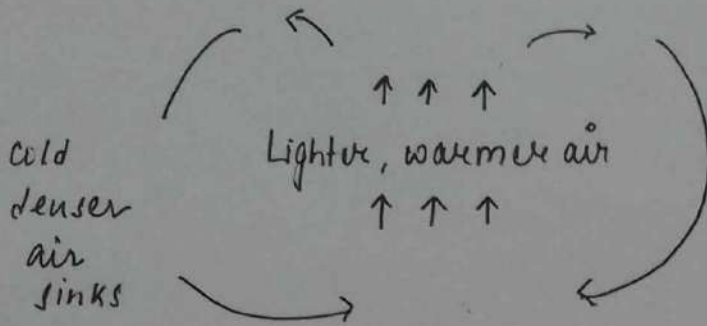 cold
denser
air
sinks
Lighter, warmer air